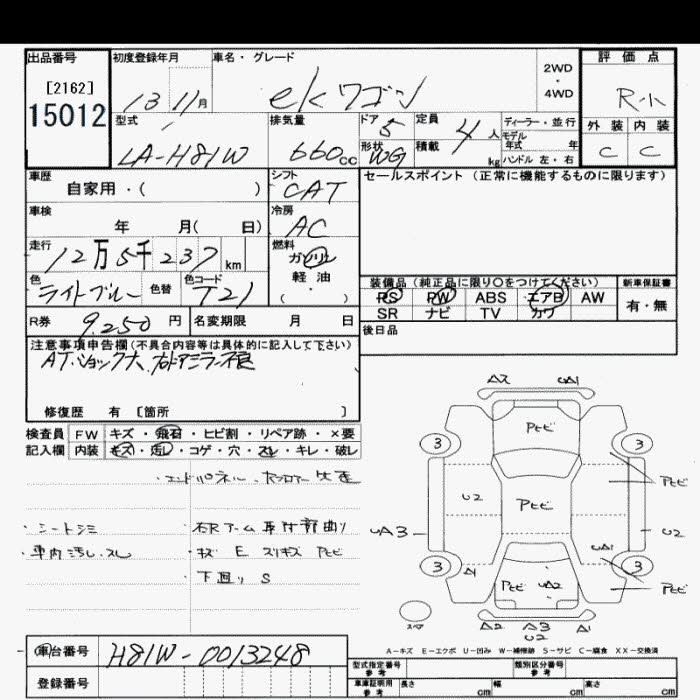 出品番号
[2162]
15012
初度登録年月
13 11月
車名・グレード
ekワゴン
2WD
・
4WD
評価点
R-小
外装 内装
C C
型式
LA-H81W
排気量
660cc
ドア 5
形状 WG
定員 4人
積載 kg
ディーラー・並行
モデル
年式 年
ハンドル 左・右
車歴
自家用・( )
シフト
CAT
セールスポイント(正常に機能するものに限ります)
車検
年 月( 日)
冷房
AC
走行
12万5千237km
燃料
ガソリン
軽・油
( ・ )
色
ライトブルー
色替
色コード
T21
装備品(純正品に限り〇をつけてください)
PS PW ABS エアB AW
SR ナビ TV カワ
新車保証書
有・無
R券 9.250円
名変期限 月 日
後日品
注意事項申告欄(不具合内容等は具体的に記入して下さい)
AT.ショック大.右ドアミラー不良
修復歴 有 [箇所 ]
検査員 FW キズ・飛石・ヒビ割・リペア跡・×要
記入欄 内装 キズ・汚し・コゲ・穴・スレ・キレ・破レ
エンドパネル.
・シートシミ
・車内汚し.スレ
・右Rアーム取付部曲り
・キズ E スリキズ Pセビ
下廻り S
A2 UA1
Pセビ
3 3
Pセビ
U2 Pセビ
UA3 U2
UA1
A1
3 3
Pセビ UA2
Pセビ
スペア
A2 A3 A1
U2
車台番号 H81W-0013248
登録番号
A-キズ E-エクボ U-凹み W-補修跡 S-サビ C-腐食 XX-交換済
型式指定番号
参考
類別区分番号
参考
車庫証明用
参考
長さ cm 幅 cm 高さ cm